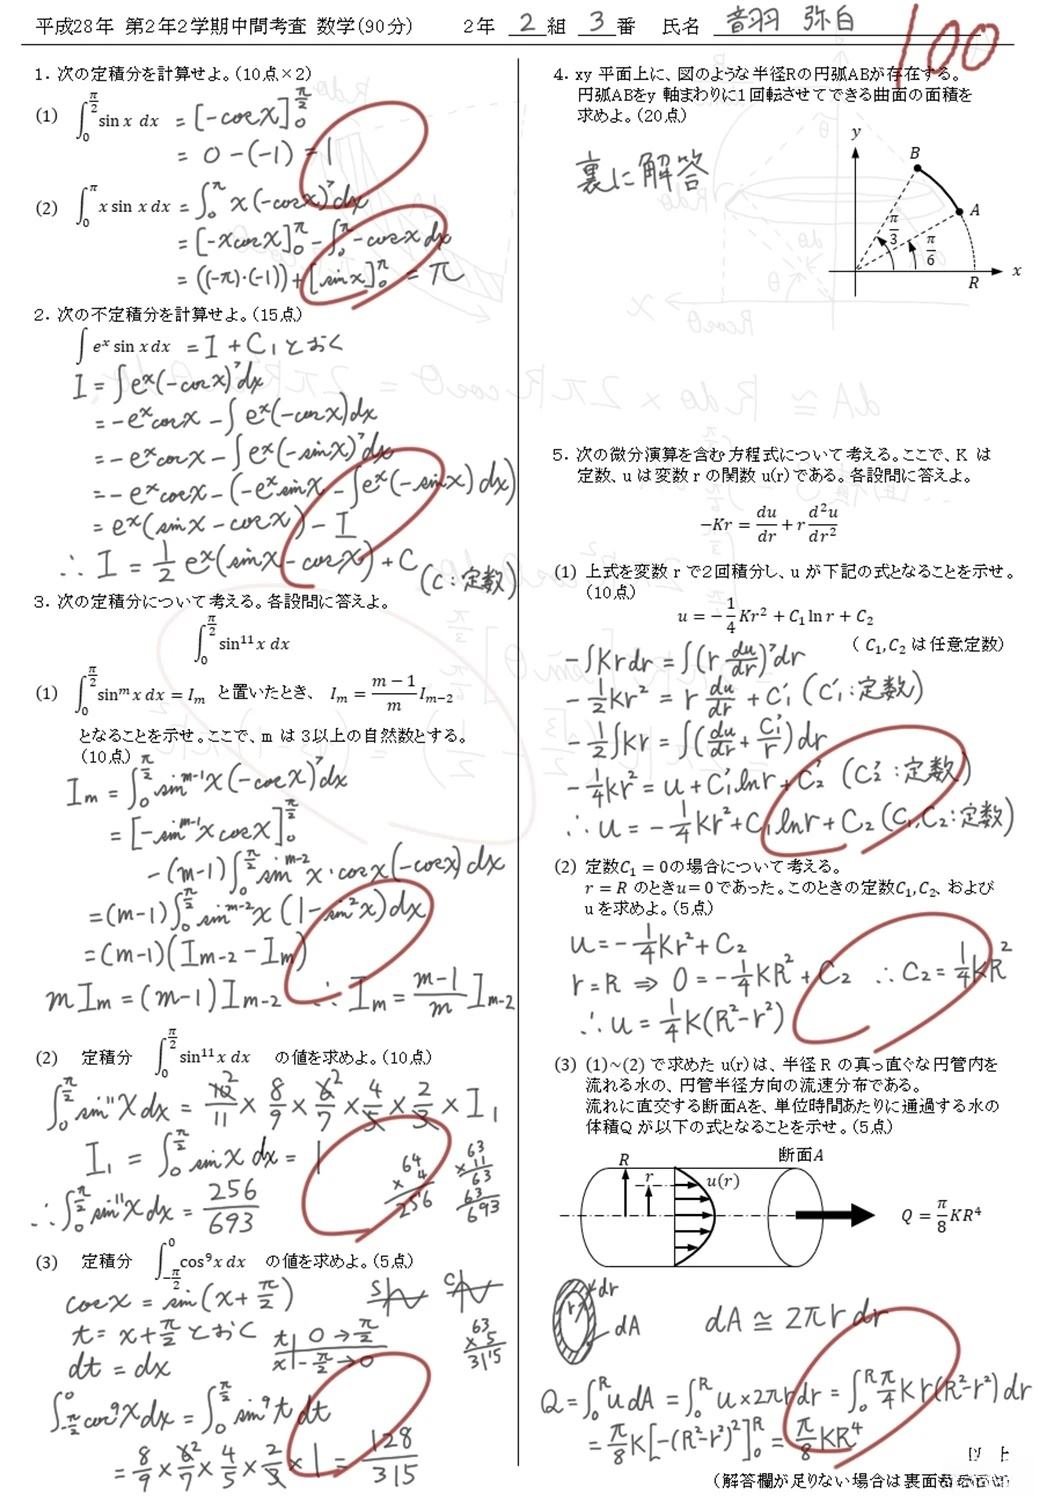 平成28年 第2年2学期中間考査 数学(90分)　2年 2 組 3 番　氏名 音羽 弥白
100
1. 次の定積分を計算せよ。(10点×2)
(1) ∫_0^{π/2} sin x dx = [-cosx]_0^{π/2}
= 0-(-1) = 1
(2) ∫_0^π x sin x dx = ∫_0^π x(-cosx)'dx
= [-xcosx]_0^π - ∫_0^π -cosx dx
= ((-π)・(-1)) + [sinx]_0^π = π
2. 次の不定積分を計算せよ。(15点)
∫ e^x sin x dx = I + C₁とおく
I = ∫e^x(-cosx)'dx
= -e^x cosx - ∫e^x(-cosx)dx
= -e^x cosx - ∫e^x(-sinx)'dx
= -e^x cosx - (-e^x sinx - ∫e^x(-sinx)dx)
= e^x(sinx - cosx) - I
∴ I = 1/2 e^x(sinx - cosx) + C (C:定数)
3. 次の定積分について考える。各設問に答えよ。
∫_0^{π/2} sin^11 x dx
(1) ∫_0^{π/2} sin^m x dx = I_m と置いたとき、 I_m = (m-1)/m I_{m-2}
となることを示せ。ここで、m は3以上の自然数とする。
(10点)
I_m = ∫_0^{π/2} sin^{m-1}x(-cosx)'dx
= [-sin^{m-1}x cosx]_0^{π/2}
-(m-1)∫_0^{π/2} sin^{m-2}x・cosx(-cosx)dx
= (m-1)∫_0^{π/2} sin^{m-2}x(1-sin²x)dx
= (m-1)(I_{m-2} - I_m)
mI_m = (m-1)I_{m-2} ∴ I_m = (m-1)/m I_{m-2}
(2) 定積分 ∫_0^{π/2} sin^11 x dx の値を求めよ。(10点)
∫_0^{π/2} sin^11 x dx = 10/11 × 8/9 × 6/7 × 4/5 × 2/3 × I₁
2 2
I₁ = ∫_0^{π/2} sinx dx = 1
64
×4
256
63
×11
63
63
693
∴∫_0^{π/2} sin^11 x dx = 256/693
(3) 定積分 ∫_{-π/2}^0 cos^9 x dx の値を求めよ。(5点)
cosx = sin(x+π/2)
S C
t = x+π/2 とおく
t | 0→π/2
x | -π/2→0
dt = dx
63
×5
315
∫_{-π/2}^0 cos^9 x dx = ∫_0^{π/2} sin^9 t dt
= 8/9 × 6/7 × 4/5 × 2/3 × 1 = 128/315
2
4. xy 平面上に、図のような半径Rの円弧ABが存在する。
円弧ABをy 軸まわりに1回転させてできる曲面の面積を
求めよ。(20点)
裏に解答
y
B
A
π/3
π/6
R
x
5. 次の微分演算を含む方程式について考える。ここで、K は
定数、u は変数 r の関数 u(r) である。各設問に答えよ。
-Kr = du/dr + r d²u/dr²
(1) 上式を変数 r で2回積分し、u が下記の式となることを示せ。
(10点)
u = -1/4 Kr² + C₁ ln r + C₂
( C₁,C₂ は任意定数)
-∫Krdr = ∫(r du/dr)'dr
-1/2 Kr² = r du/dr + C₁' (C₁':定数)
-1/2∫Kr = ∫(du/dr + C₁'/r)dr
-1/4 Kr² = u + C₁'lnr + C₂' (C₂':定数)
∴ u = -1/4 Kr² + C₁lnr + C₂ (C₁,C₂:定数)
(2) 定数C₁ = 0の場合について考える。
r = R のときu=0であった。このときの定数C₁,C₂、および
u を求めよ。(5点)
u = -1/4 Kr² + C₂
r=R ⇒ 0 = -1/4 KR² + C₂ ∴ C₂ = 1/4 KR²
∴ u = 1/4 K(R²-r²)
(3) (1)~(2) で求めた u(r) は、半径 R の真っ直ぐな円管内を
流れる水の、円管半径方向の流速分布である。
流れに直交する断面Aを、単位時間あたりに通過する水の
体積Q が以下の式となることを示せ。(5点)
断面A
R
r
u(r)
Q = π/8 KR⁴
r
dr
dA
dA ≅ 2πr dr
Q = ∫_0^R u dA = ∫_0^R u×2πrdr = ∫_0^R π/4 Kr(R²-r²)dr
= π/8 K[-(R²-r²)²]_0^R = π/8 KR⁴
以 上
(解答欄が足りない場合は裏面